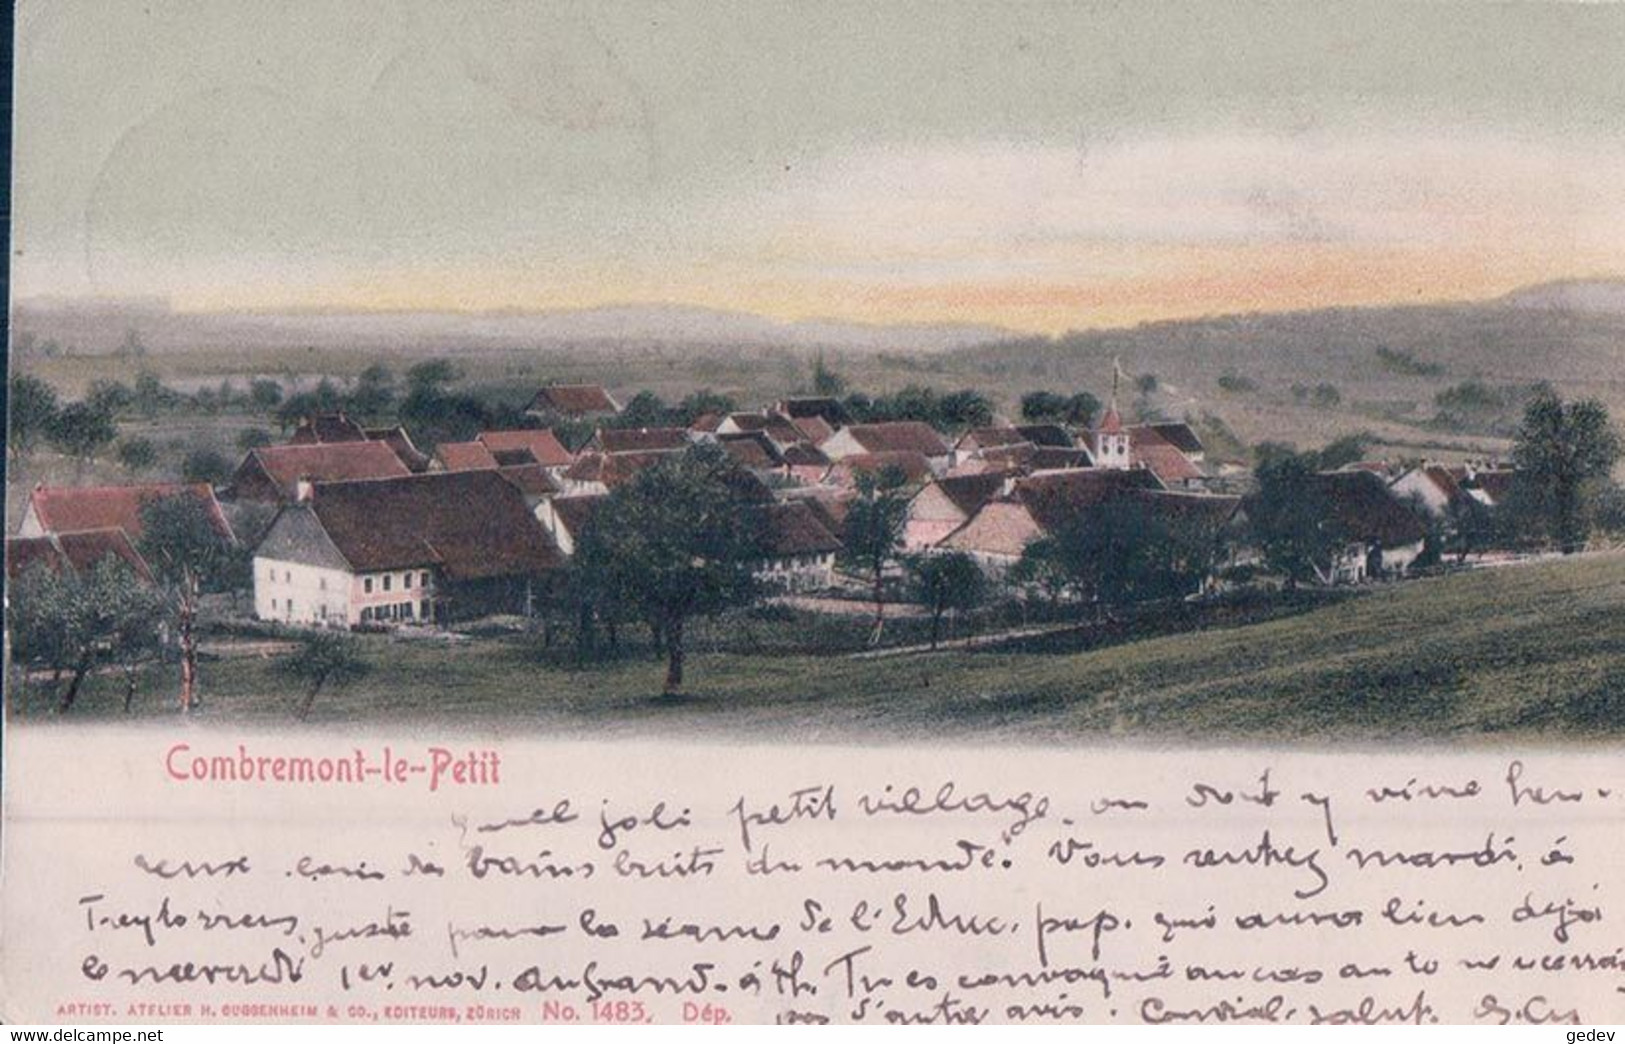 Combremont-le-Petit
Quel joli petit village, on doit y vivre heu-
reux loin des vains bruits du monde. Vous rentrez mardi, à
Treytorrens, juste pour la séance de l'Educ. pop. qui aura lieu déjà
le mercredi 1er. nov. Au Grand- Tu es convoqué au cas où tu ne recevrais
pas d'autre avis. Cordial. salut.
ARTIST. ATELIER H. GUGGENHEIM & CO., EDITEURS, ZÜRICH No. 1483. Dép.
gedev